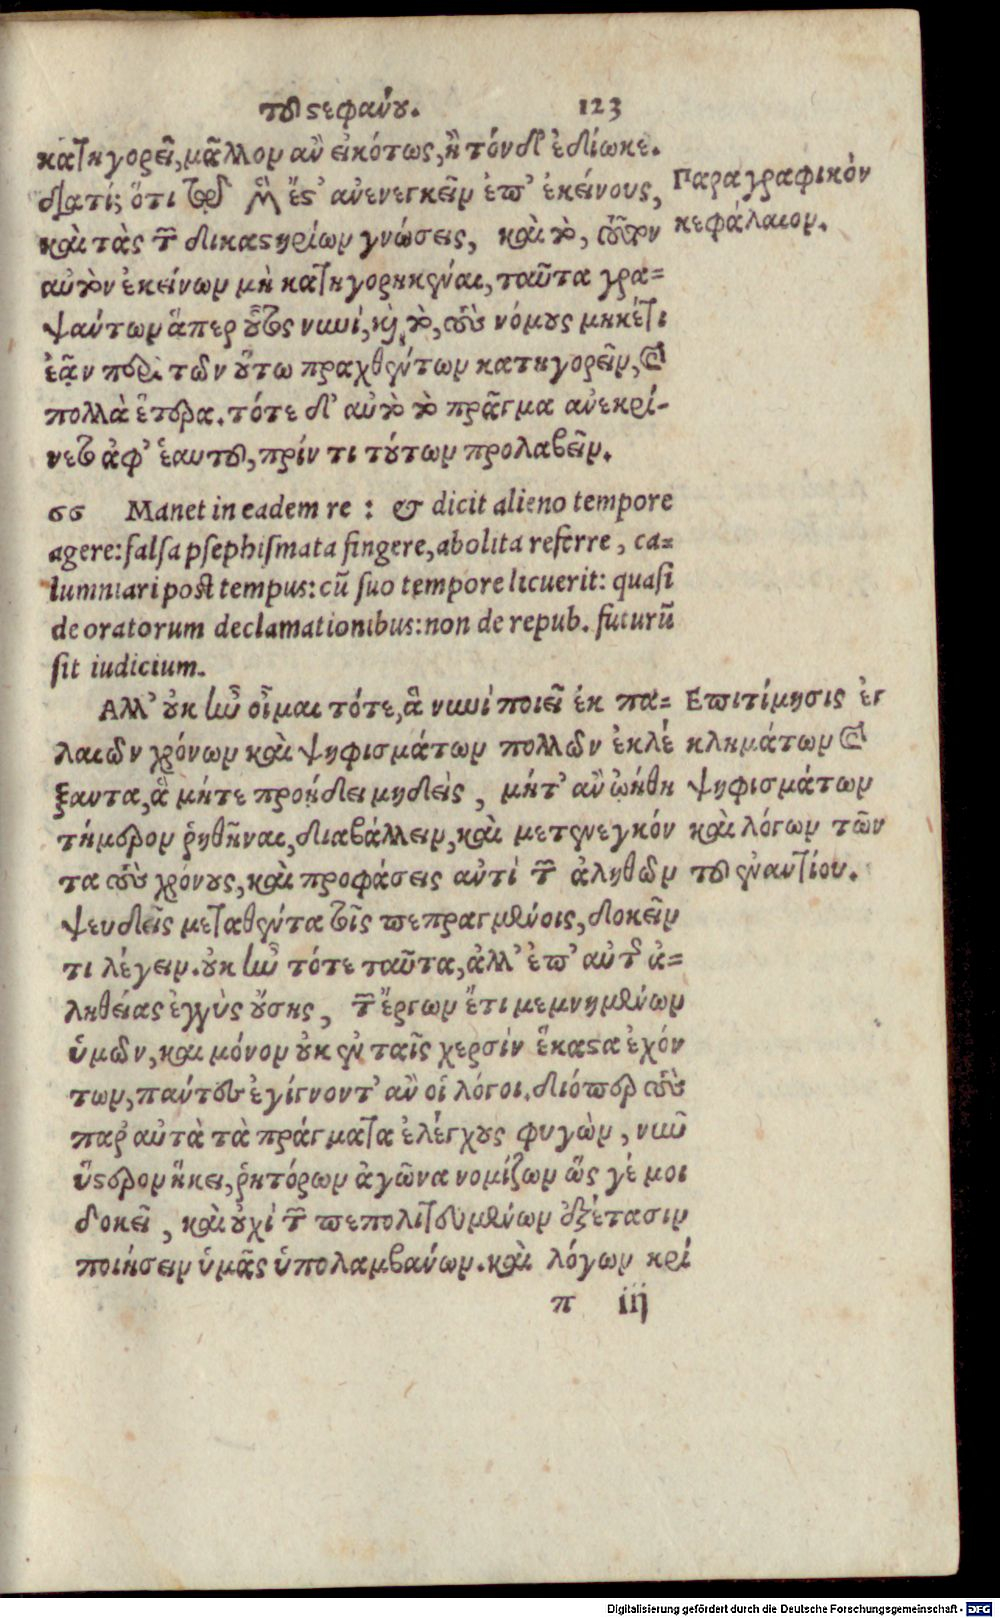 τοῦ στεφάνου. 123
κατηγορεῖ, μᾶλλον ἂν εἰκότως, ἢ τόνδ' ἐδίωκε.
διατί; ὅτι τῷδε μὲν ἔστ' ἀνενεγκεῖν ἐπ' ἐκείνους,
καὶ τὰς τῶν δικαστηρίων γνώσεις, καὶ τὸ, τοῦτον
αὐτὸν ἐκείνων μὴ κατηγορηκέναι, ταῦτα γρα-
ψάντων ἅπερ οὗτος νυνί, καὶ τὸ, τοὺς νόμους μηκέτι
ἐᾶν περὶ τῶν οὕτω πραχθέντων κατηγορεῖν, καὶ
πολλὰ ἕτερα. τότε δ' αὐτὸ τὸ πρᾶγμα ἀνεκρί-
νετο ἀφ' ἑαυτοῦ, πρίν τι τούτων προλαβεῖν.
Παραγραφικὸν
κεφάλαιον.
66 Manet in eadem re : & dicit alieno tempore
agere: falsa psephismata fingere, abolita referre, ca-
lumniari post tempus: cũ suo tempore licuerit: quasi
de oratorum declamationibus: non de repub. futurũ
sit iudicium.
Αλλ' οὐκ ἦν οἶμαι τότε, ἃ νυνὶ ποιεῖ ἐκ πα-
λαιῶν χρόνων καὶ ψηφισμάτων πολλῶν ἐκλέ
ξαντα, ἃ μήτε προῄδει μηδεὶς, μήτ' ἂν ᾠήθη
τήμερον ῥηθῆναι, διαβάλλειν, καὶ μετενεγκόν
τα τοὺς χρόνους, καὶ προφάσεις ἀντὶ τῶν ἀληθῶν
ψευδεῖς μεταθέντα τοῖς πεπραγμένοις, δοκεῖν
τι λέγειν. οὐκ ἦν τότε ταῦτα, ἀλλ' ἐπ' αὐτῆς ἀ-
ληθείας ἐγγὺς οὔσης, τῶν ἔργων ἔτι μεμνημένων
ὑμῶν, καὶ μόνον οὐκ ἐν ταῖς χερσὶν ἕκαστα ἐχόν
των, πάντες ἐγίγνοντ' ἂν οἱ λόγοι. διόπερ τοὺς
παρ' αὐτὰ τὰ πράγματα ἐλέγχους φυγὼν, νῦν
ὕστερον ἥκει, ῥητόρων ἀγῶνα νομίζων ὥς γέ μοι
δοκεῖ, καὶ οὐχὶ τῶν πεπολιτευμένων ἐξέτασιν
ποιήσειν ὑμᾶς ὑπολαμβάνων. καὶ λόγων κρί
Επιτίμησις ἐγ
κλημάτων καὶ
ψηφισμάτων
καὶ λόγων τῶν
τοῦ ἐναντίου.
π iij
Digitalisierung gefördert durch die Deutsche Forschungsgemeinschaft - DFG